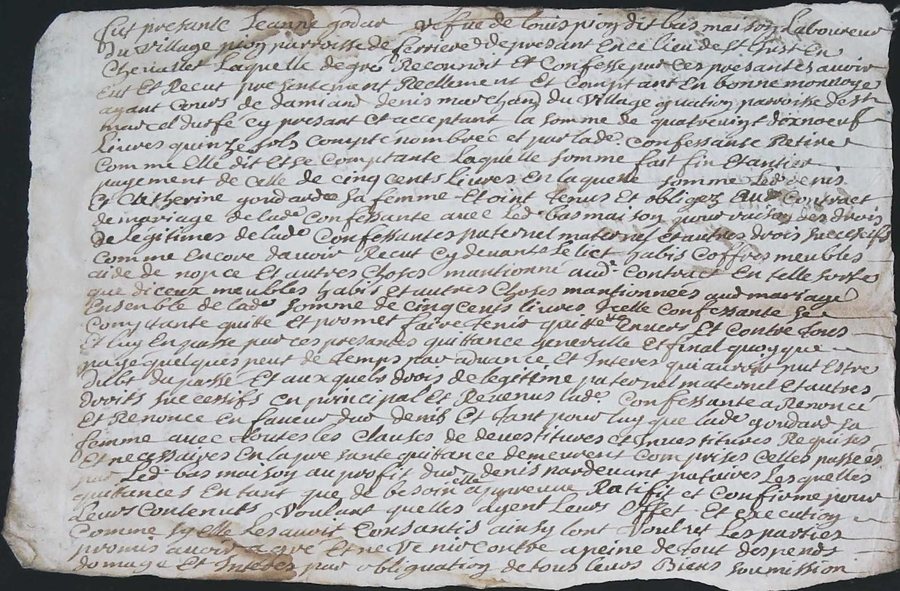 fut presante Jeanne godar vefue de louis pion dit bas maison Laboureur
du village pion parroisse de ferriere de presant en ce lieu de St Just En
Chevallet Laquelle de gré Reconnoit et Confesse par ces presantes avoir
Eut Et Recut presentement Reellement Et Comptant En bonne monnoye
ayant Cours de damian denis marchand du village parroisse de St
marcel durfe cy presant et acceptant la somme de quatrevingt dixnoeuf
Livres quinze sols Compté nombree et par lade Confessante Retiree
Comme Elle dit Et se Comptante Laquelle somme fait fin Et antier
payement de Celle de Cinq cents livres En laquelle somme Led denis
Et Catherine goudard sa femme Etoint tenus Et obligez Aud Contract
de mariage de lade Confessante avec Led bas maison pour raison des drois
de légitimes de lade Confessantes paternel maternel Et autres drois successifs
Comme Encore davoir Recut Cy devant Le liet habis Coffres meubles
aide de nopce Et autres Choses mantionné aud Contract En telle sorte
que diceux meubles habis Et autres Choses mantionnées aud mariage
Ensemble de lade somme de Cinq cents livres Icelle Confessante se
Comptante quitte Et promet faire tenir quitte Envers Et Contre tous
Et luy En passe par ces presantes quitance generalle Et final quoy que
paye quelques peut de temps par advance Et Interes qui auroit put Estre
dubt du passé Et auxquels drois de legitime paternel maternel Et autres
droits successifs En principal Et Revenus lade Confessante a Renoncé
Et Renonce En faveur dud denis Et tant pour luy que lade goudard sa
femme avec toutes les Clauses de devestitures et Investitures Requises
Et necessaires En la presante quitance demeurent Comprises Celles passées
par Led bas maison au profit dud denis pardevant Lesquelles
quitances En tant que de besoin elle appreuve Ratiffit et Confirme pour
Leurs Contenuts voulant quelles ayent Leurs Effet Et execution
Comme sy elle Les avoit Consantis ainsy Lont voulut Les parties
promis avoir agre Et ne venir Contre a peine de tout despends
domage Et Interes par obligation de tous leurs Biens soumission